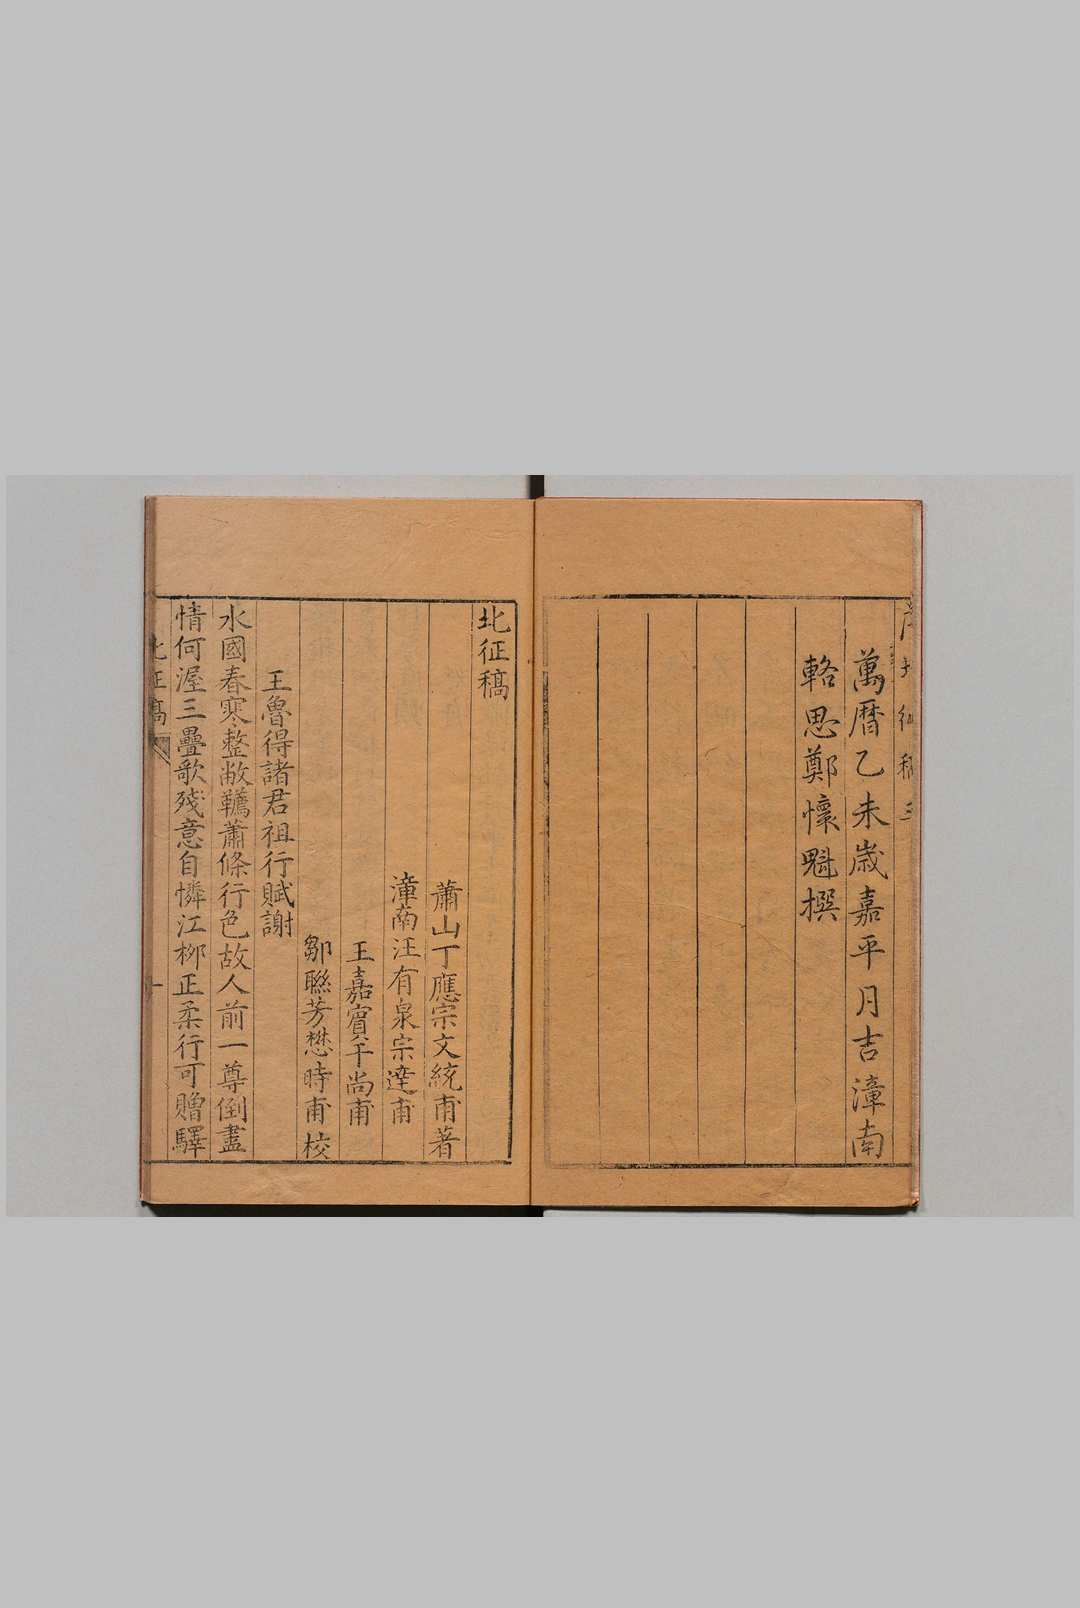 萬曆乙未歲嘉平月吉漳南
輅思鄭懷魁撰
北征稿
蕭山丁應宗文統甫著
漳南汪有泉宗達甫
王嘉賓平尚甫
鄒聮芳懋時甫校
王魯得諸君祖行賦謝
水國春寒整敝韉蕭條行色故人前一尊倒盡
情何渥三疊歌殘意自憐江栁正柔行可贈驛
北征稿
一